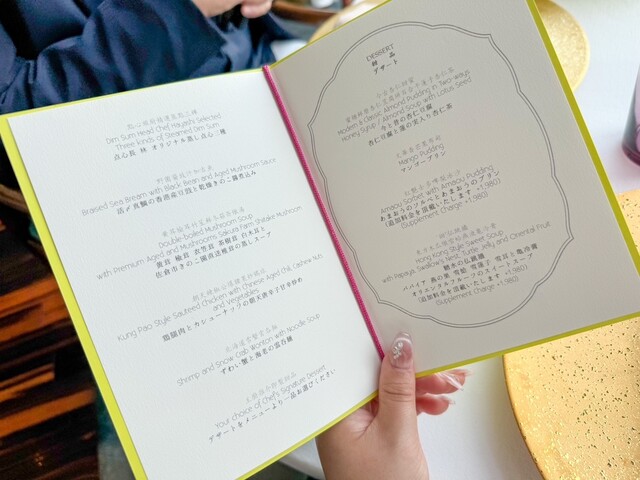 Dim Sum Head Chef Hayashi Selected
Three kinds of Steamed Dim Sum
点心長 林 オリジナル蒸し点心三種
Braised Sea Bream with Black Bean and Aged Mushroom Sauce
活〆真鯛の香港産豆豉と乾燥きのこ醤煮込み
Double-boiled Mushroom Soup
with Premium Aged and Mushrooms Sakura Farm Shiitake Mushroom
佐倉市きのこ園直送椎茸の蒸しスープ
Kung Pao Style Sauteed Chicken with Chinese Aged Chili, Cashew Nuts
and Vegetables
鶏腿肉とカシューナッツの朝天唐辛子甘辛炒め
Shrimp and Snow Crab Wonton with Noodle Soup
ずわい蟹と海老の雲呑麺
Your choice of Chef's Signature Dessert
デザートをメニューより一品お選びください
DESSERT
甜品
デザート
Modern & Classic Almond Pudding in Two ways
Honey Syrup / Almond Soup with Lotus Seed
今と昔の杏仁豆腐
杏仁豆腐と蓮の実入り杏仁茶
Mango Pudding
マンゴープリン
Amaou Sorbet with Amaou Pudding
あまおうのソルベとあまおうのプリン
(追加料金を頂戴いたします +1,980)
(Supplement Charge +1,980)
Hong Kong Style Sweet Soup
with Papaya, Swallow's Nest, Turtle Jelly and Oriental Fruit
糖水の仏跳牆
パパイア 燕の巣 雪蛤 雪蓮子 雪耳と亀苓膏
オリエンタルフルーツのスイートスープ
(追加料金を頂戴いたします +1,980)
(Supplement Charge +1,980)